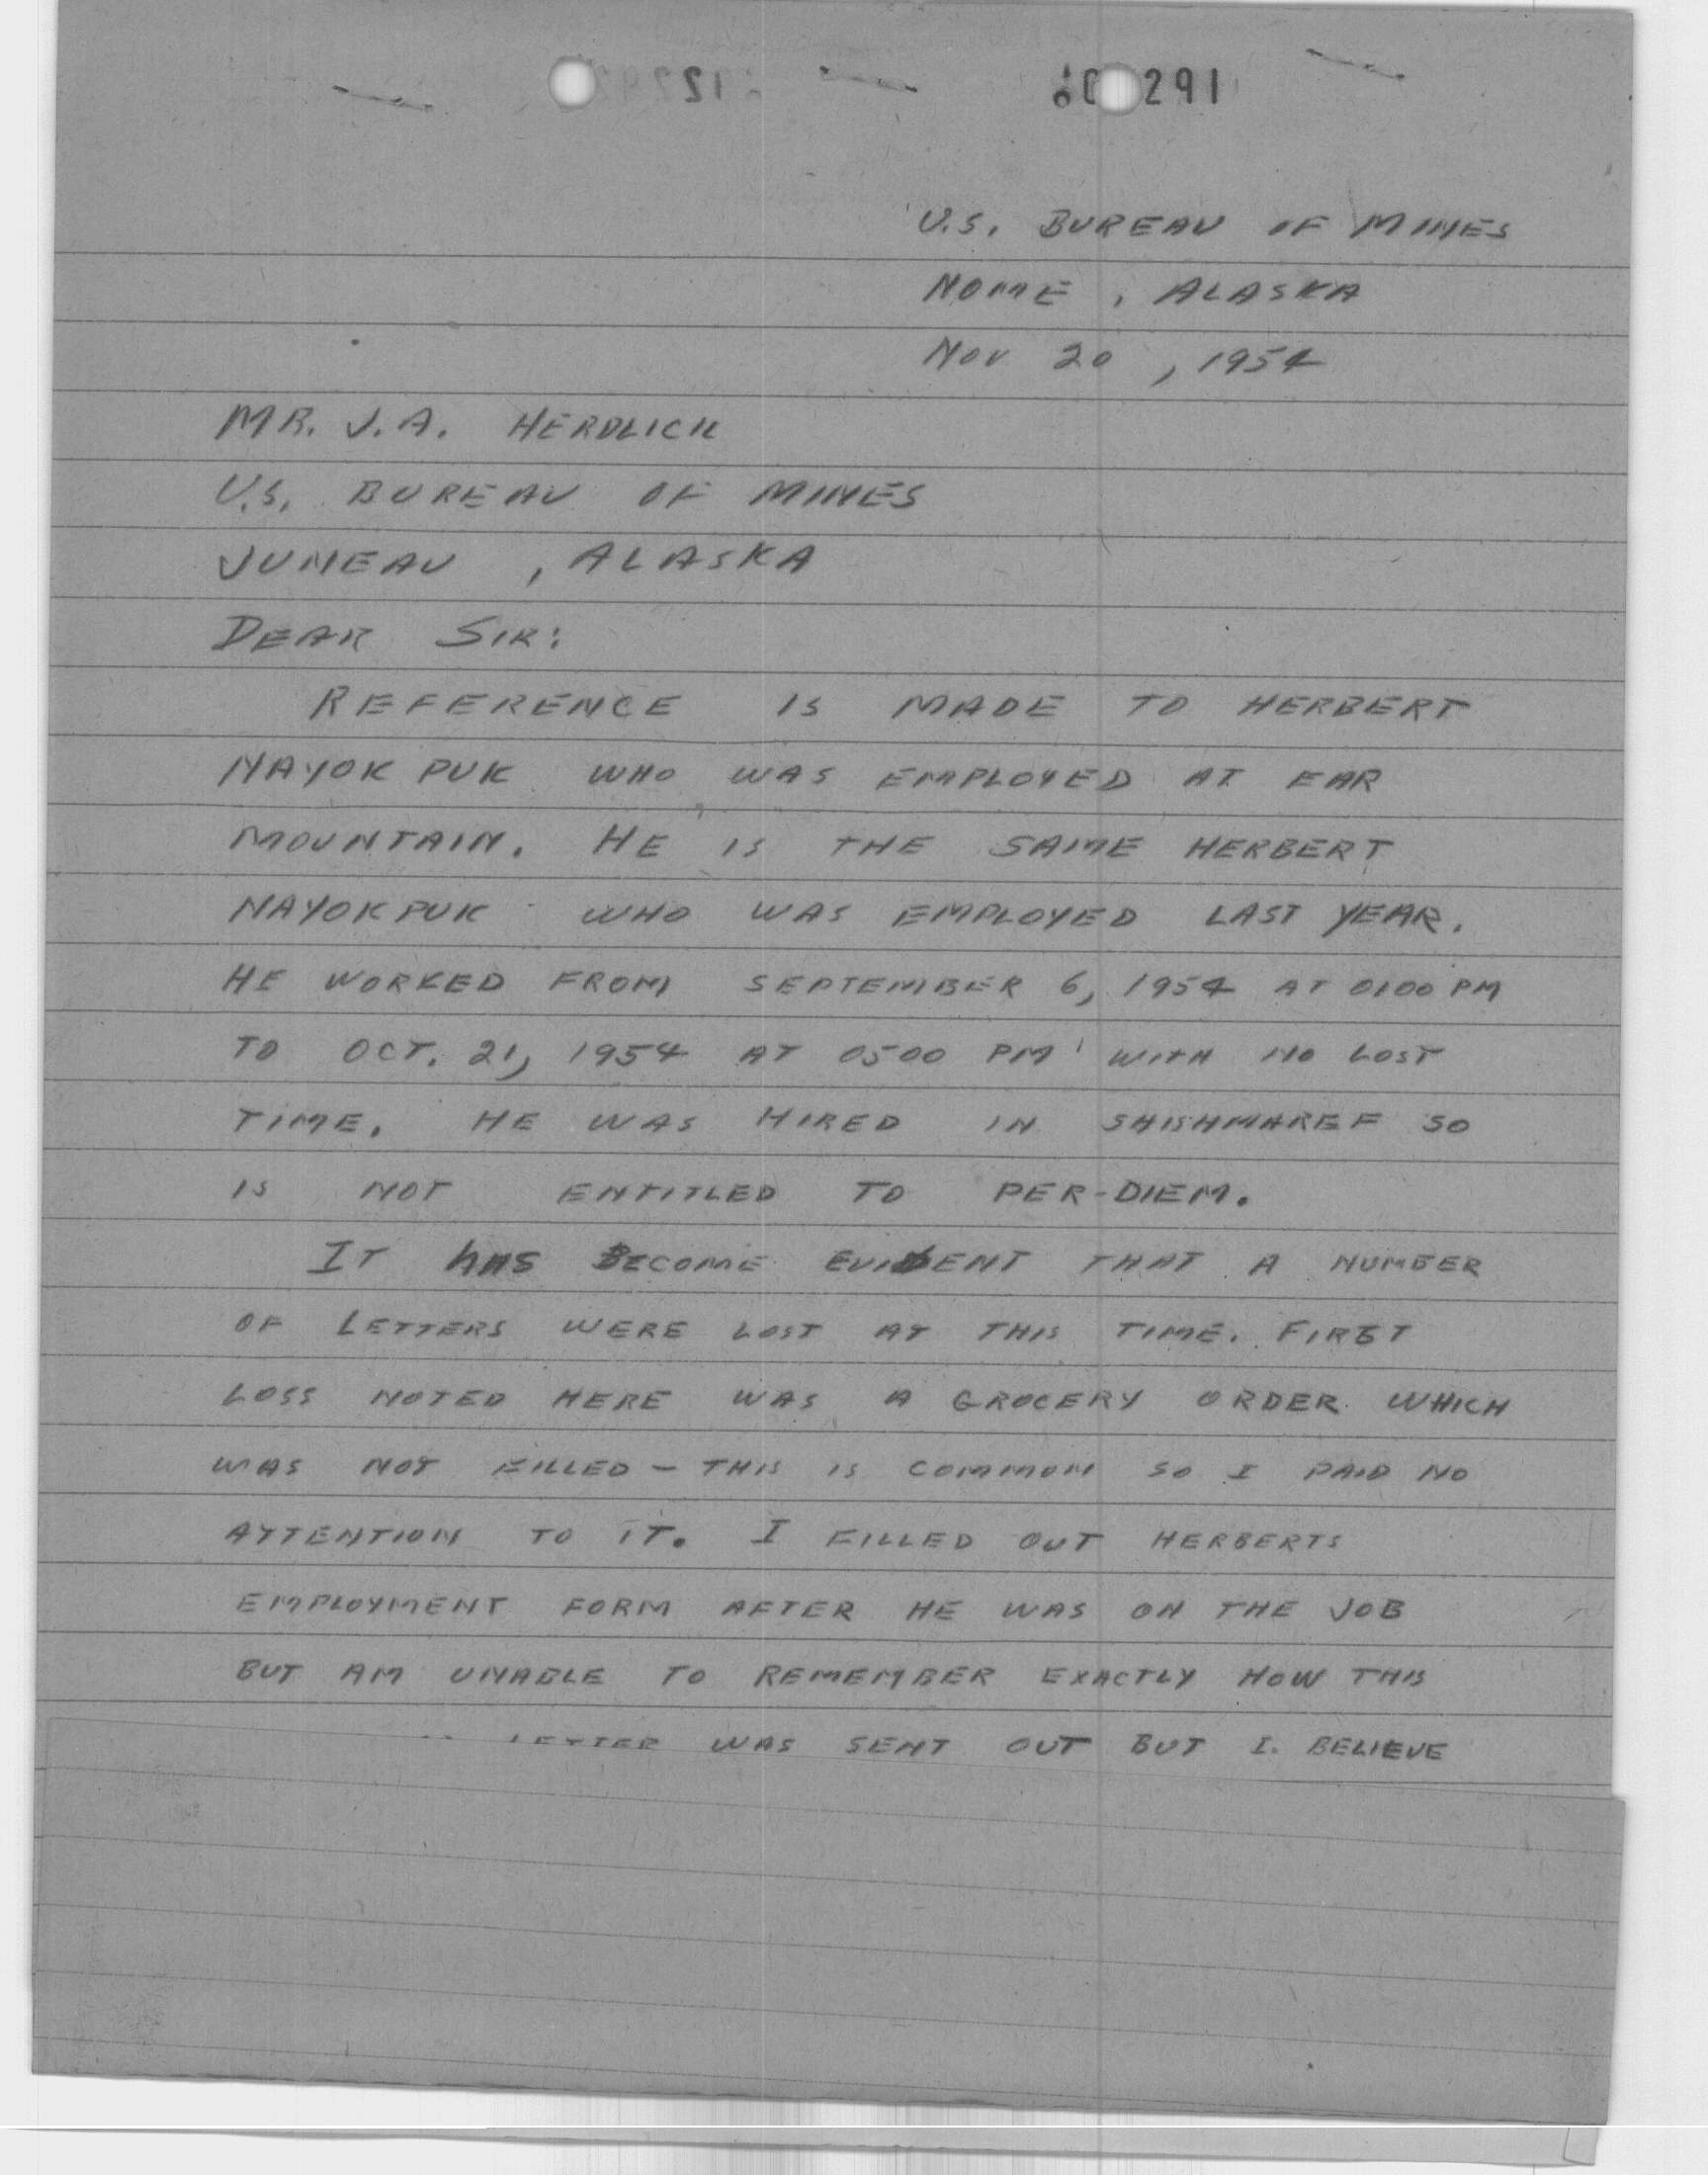 291
U.S. BUREAU OF MINES
NOME, ALASKA
NOV 20, 1954
MR. J.A. HERDLICK
U.S. BUREAU OF MINES
JUNEAU, ALASKA
DEAR SIR:
REFERENCE IS MADE TO HERBERT
NAYOK PUK WHO WAS EMPLOYED AT EAR
MOUNTAIN. HE IS THE SAME HERBERT
NAYOKPUK WHO WAS EMPLOYED LAST YEAR.
HE WORKED FROM SEPTEMBER 6, 1954 AT 0100 PM
TO OCT. 21, 1954 AT 0500 PM WITH NO LOST
TIME. HE WAS HIRED IN SHISHMAREF SO
IS NOT ENTITLED TO PER-DIEM.
IT HAS BECOME EVIDENT THAT A NUMBER
OF LETTERS WERE LOST AT THIS TIME. FIRST
LOSS NOTED HERE WAS A GROCERY ORDER WHICH
WAS NOT FILLED - THIS IS COMMON SO I PAID NO
ATTENTION TO IT. I FILLED OUT HERBERTS
EMPLOYMENT FORM AFTER HE WAS ON THE JOB
BUT AM UNABLE TO REMEMBER EXACTLY HOW THIS
LETTER WAS SENT OUT BUT I BELIEVE